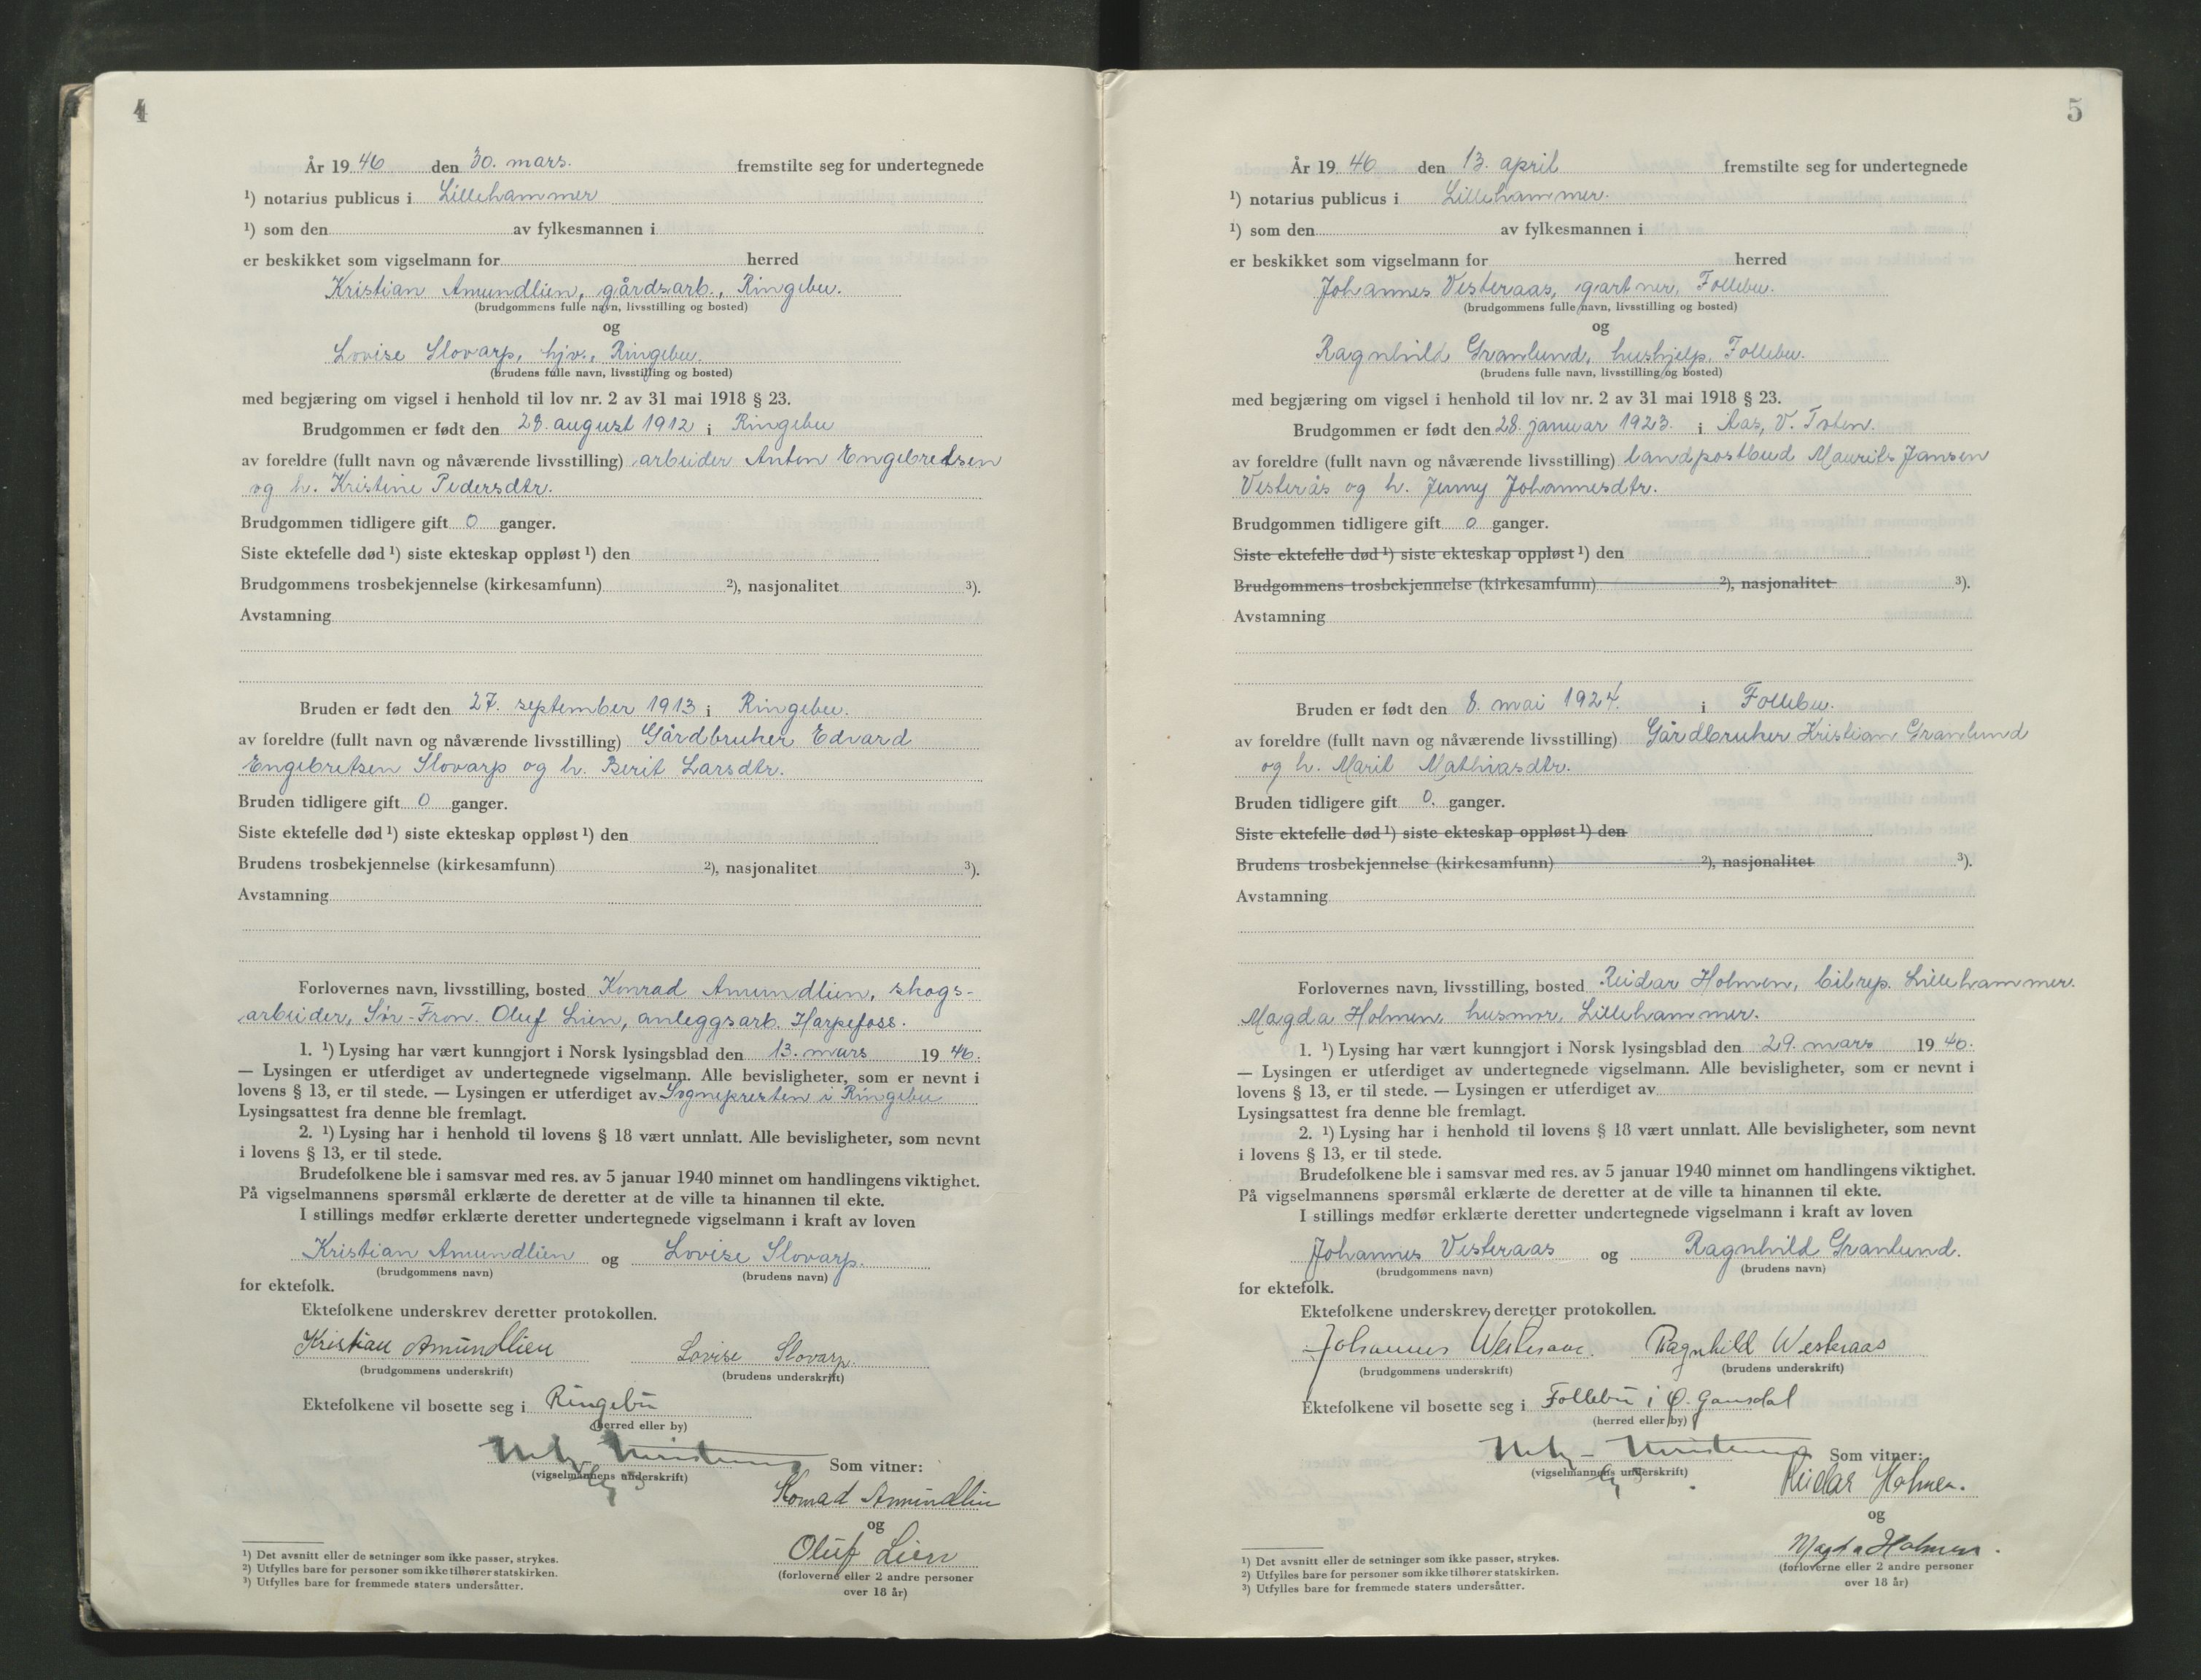 4
År 19 46 den 30. mars. fremstilte seg for undertegnede
¹) notarius publicus i Lillehammer
¹) som den av fylkesmannen i
er beskikket som vigselmann for herred
Kristian Amundlien, gårdsarb., Ringebu.
(brudgommens fulle navn, livsstilling og bosted)
og
Lovise Slovarp, hjv., Ringebu.
(brudens fulle navn, livsstilling og bosted)
med begjæring om vigsel i henhold til lov nr. 2 av 31 mai 1918 § 23.
Brudgommen er født den 28. august 1912 i Ringebu
av foreldre (fullt navn og nåværende livsstilling) arbeider Anton Engebretsen
og h. Kristine Pedersdtr.
Brudgommen tidligere gift 0 ganger.
Siste ektefelle død ¹) siste ekteskap oppløst ¹) den
Brudgommens trosbekjennelse (kirkesamfunn) ²), nasjonalitet ³).
Avstamning
Bruden er født den 27. september 1913 i Ringebu.
av foreldre (fullt navn og nåværende livsstilling) Gårdbruker Edvard
Engebretsen Slovarp og h. Berit Larsdtr.
Bruden tidligere gift 0 ganger.
Siste ektefelle død ¹) siste ekteskap oppløst ¹) den
Brudens trosbekjennelse (kirkesamfunn) ²), nasjonalitet ³).
Avstamning
Forlovernes navn, livsstilling, bosted Konrad Amundlien, skogs-
arbeider, Sør-Fron. Oluf Lien, anleggsarb. Harpefoss.
1. ¹) Lysing har vært kunngjort i Norsk lysingsblad den 13. mars 19 46.
— Lysingen er utferdiget av undertegnede vigselmann. Alle bevisligheter, som er nevnt i
lovens § 13, er til stede. — Lysingen er utferdiget av Sognepresten i Ringebu
Lysingsattest fra denne ble fremlagt.
2. ¹) Lysing har i henhold til lovens § 18 vært unnlatt. Alle bevisligheter, som nevnt
i lovens § 13, er til stede.
Brudefolkene ble i samsvar med res. av 5 januar 1940 minnet om handlingens viktighet.
På vigselmannens spørsmål erklærte de deretter at de ville ta hinannen til ekte.
I stillings medfør erklærte deretter undertegnede vigselmann i kraft av loven
Kristian Amundlien og Lovise Slovarp.
(brudgommens navn) (brudens navn)
for ektefolk.
Ektefolkene underskrev deretter protokollen.
Kristian Amundlien Lovise Slovarp.
(brudgommens underskrift) (brudens underskrift)
Ektefolkene vil bosette seg i Ringebu
(herred eller by)
Som vitner:
(vigselmannens underskrift)
Konrad Amundlien
og
Oluf Lien
(forloverne eller 2 andre personer
over 18 år)
¹) Det avsnitt eller de setninger som ikke passer, strykes.
²) Utfylles bare for personer som ikke tilhører statskirken.
³) Utfylles bare for fremmede staters undersåtter.
5
År 19 46 den 13. april fremstilte seg for undertegnede
¹) notarius publicus i Lillehammer.
¹) som den av fylkesmannen i
er beskikket som vigselmann for herred
Johannes Vesteraas, gartner, Follebu.
(brudgommens fulle navn, livsstilling og bosted)
og
Ragnhild Granlund, hushjelp, Follebu.
(brudens fulle navn, livsstilling og bosted)
med begjæring om vigsel i henhold til lov nr. 2 av 31 mai 1918 § 23.
Brudgommen er født den 28. januar 1923. i Aas, V. Toten.
av foreldre (fullt navn og nåværende livsstilling) landpostbud Maurits Jansen
Vesterås og h. Jenny Johannesdtr.
Brudgommen tidligere gift 0 ganger.
Siste ektefelle død ¹) siste ekteskap oppløst ¹) den
Brudgommens trosbekjennelse (kirkesamfunn) ²), nasjonalitet ³).
Avstamning
Bruden er født den 8. mai 1924. i Follebu.
av foreldre (fullt navn og nåværende livsstilling) Gårdbruker Kristian Granlund
og h. Marit Mathiasdtr.
Bruden tidligere gift 0. ganger.
Siste ektefelle død ¹) siste ekteskap oppløst ¹) den
Brudens trosbekjennelse (kirkesamfunn) ²), nasjonalitet ³).
Avstamning
Forlovernes navn, livsstilling, bosted Reidar Holmen, bilrep. Lillehammer.
Magda Holmen, husmor, Lillehammer.
1. ¹) Lysing har vært kunngjort i Norsk lysingsblad den 29. mars 19 46.
— Lysingen er utferdiget av undertegnede vigselmann. Alle bevisligheter, som er nevnt i
lovens § 13, er til stede. — Lysingen er utferdiget av
Lysingsattest fra denne ble fremlagt.
2. ¹) Lysing har i henhold til lovens § 18 vært unnlatt. Alle bevisligheter, som nevnt
i lovens § 13, er til stede.
Brudefolkene ble i samsvar med res. av 5 januar 1940 minnet om handlingens viktighet.
På vigselmannens spørsmål erklærte de deretter at de ville ta hinannen til ekte.
I stillings medfør erklærte deretter undertegnede vigselmann i kraft av loven
Johannes Vesteraas og Ragnhild Granlund.
(brudgommens navn) (brudens navn)
for ektefolk.
Ektefolkene underskrev deretter protokollen.
Johannes Westeraas. Ragnhild Westeraas
(brudgommens underskrift) (brudens underskrift)
Ektefolkene vil bosette seg i Follebu i Ø. Gausdal
(herred eller by)
Som vitner:
(vigselmannens underskrift)
Reidar Holmen.
og
Magda Holmen.
(forloverne eller 2 andre personer
over 18 år)
¹) Det avsnitt eller de setninger som ikke passer, strykes.
²) Utfylles bare for personer som ikke tilhører statskirken.
³) Utfylles bare for fremmede staters undersåtter.